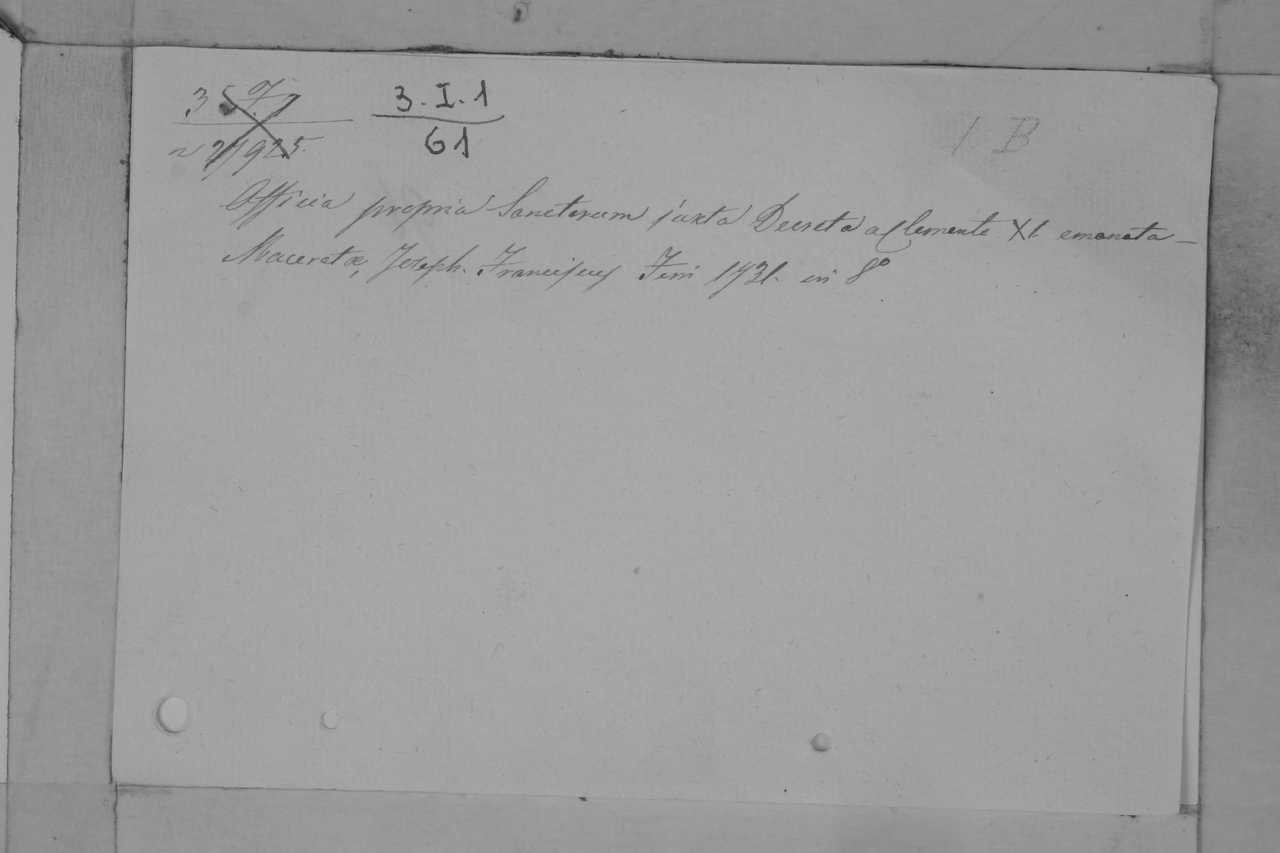 3. I. 1
61
1 B
Officia propria Sanctorum juxta Decreta a Clemente XI. emanata —
Maceratæ, Joseph. Franciscus Ferri 1731. in 8º